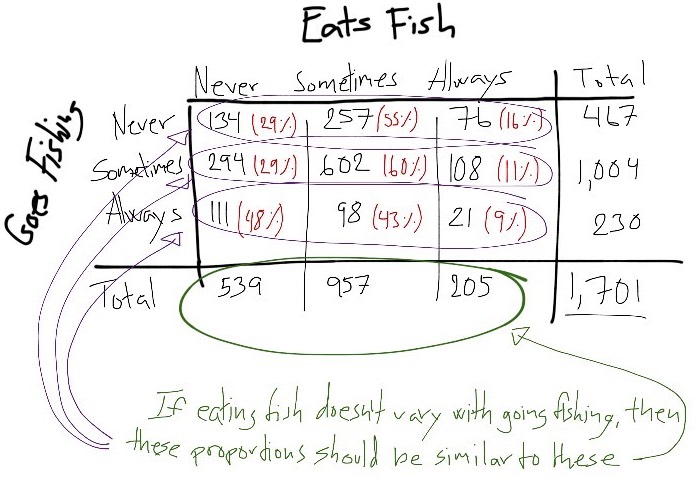 Eats Fish
Never Sometimes Always Total
Goes Fishing
Never 134 (29%) 257 (55%) 76 (16%) 467
Sometimes 294 (29%) 602 (60%) 108 (11%) 1,004
Always 111 (48%) 98 (43%) 21 (9%) 230
Total 539 957 205 1,701
If eating fish doesn't vary with going fishing, then
these proportions should be similar to these